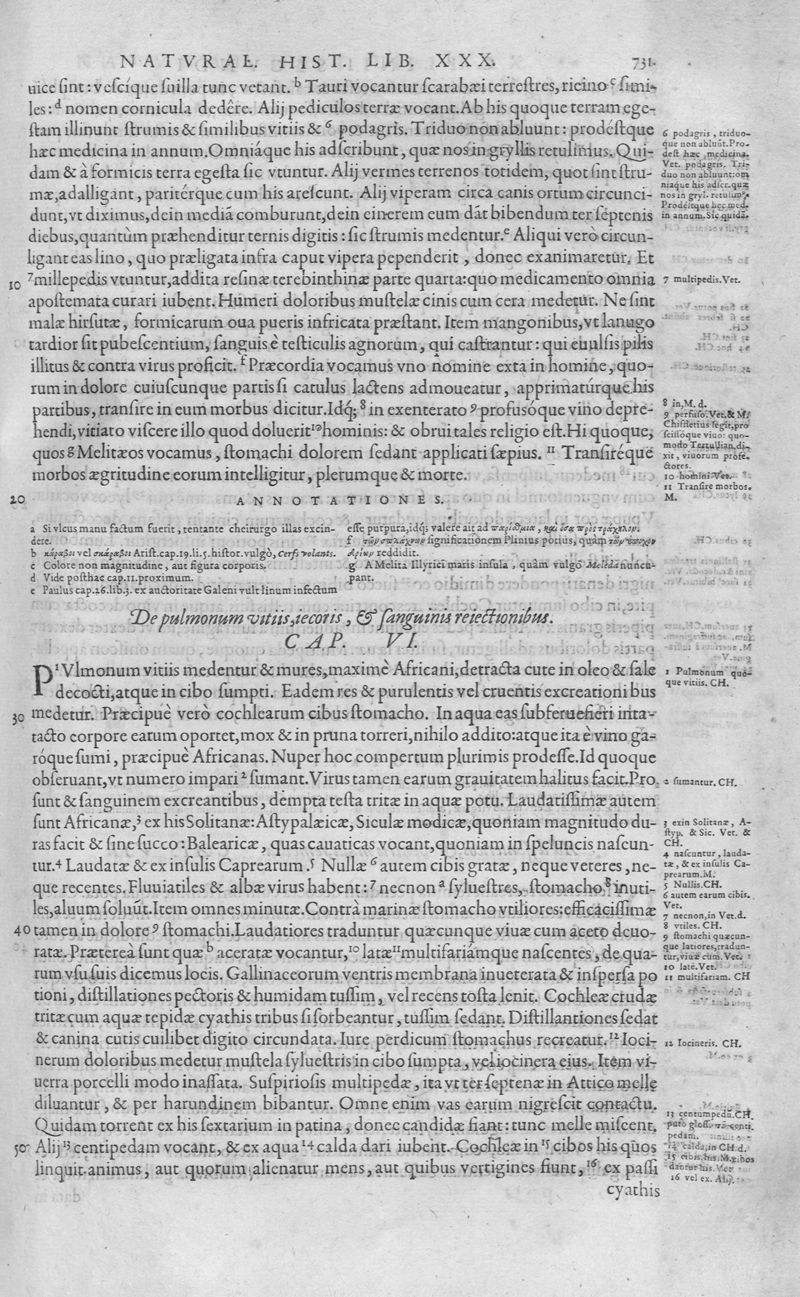 NATVRAL. HIST. LIB. XXX. 731.
uice ſint: veſcíque ſuilla tunc vetant. b Tauri vocantur ſcarabæi terreſtres, ricino c ſimi-
les: d nomen cornicula dedêre. Alij pediculos terræ vocant. Ab his quoque terram ege-
ſtam illinunt ſtrumis & ſimilibus vitiis & 6 podagris. Triduo non abluunt: prodéſtque
hæc medicina in annum. Omniáque his adſcribunt, quæ nos in gryllis retulimus. Qui-
dam & à formicis terra egeſta ſic vtuntur. Alij vermes terrenos totidem, quot ſint ſtru-
mæ, adalligant, paritérque cum his areſcunt. Alij viperam circa canis ortum circunci-
dunt, vt diximus, dein mediā comburunt, dein cinerem eum dāt bibendum ter ſeptenis
diebus, quantùm præhenditur ternis digitis: ſic ſtrumis medentur. e Aliqui verò circun-
ligant eas lino, quo præligata infra caput vipera pependerit, donec exanimaretur. Et
10 7 millepedis vtuntur, addita reſinæ terebinthinæ parte quarta: quo medicamento omnia
apoſtemata curari iubent. Humeri doloribus muſtelæ cinis cum cera medetur. Ne ſint
malæ hirſutæ, formicarum oua pueris infricata præſtant. Item mangonibus, vt lanugo
tardior ſit pubeſcentium, ſanguis è teſticulis agnorum, qui caſtrantur: qui euulſis pilis
illitus & contra virus proficit. f Præcordia vocamus vno nomine exta in homine, quo-
rum in dolore cuiuſcunque partis ſi catulus lactens admoueatur, apprimatúrque his
partibus, tranſire in eum morbus dicitur. Idq; 8 in exenterato 9 profusóque vino depre-
hendi, vitiato viſcere illo quod doluerit 10 hominis: & obrui tales religio eſt. Hi quoque,
quos g Melitæos vocamus, ſtomachi dolorem ſedant applicati ſæpius. 11 Tranſiréque
morbos ægritudine eorum intelligitur, plerumque & morte.
6 podagris, triduo-
que non abluūt. Pro-
deſt hæc medicina.
Vet. podagris. Tri-
duo non abluunt: om
niaque his adſcr. quæ
nos in gryl. retulim9.
Prodéitque hec med.
in annum. Sic quidā.
7 multipedis. Vet.
8 in, M. d.
9 perfuſo. Vet. & M.
Chiffletius legit, pro
ſciſſóque viuo: quo-
modo Tertullian. di-
xit, viuorum proſe-
ctores.
10 homini Vet.
11 Tranſire morbos.
M.
20 ANNOTATIONES.
a Si vlcus manu factum fuerit, tentante cheirurgo illas excin-
dere.
b κάραβοι vel σκάραβοι Ariſt. cap. 19. li. 5. hiſtor. vulgò, Cerfs volants.
c Colore non magnitudine, aut figura corporis.
d Vide poſthac cap. 11. proximum.
e Paulus cap. 26. lib. 3. ex auctoritate Galeni vult linum infectum
eſſe purpura, idq; valere ait ad
f ſignificationem Plinius potiùs, quàm
reddidit.
g A Melita Illyrici maris inſula, quàm vulgò Meleda nuncu-
pant.
De pulmonum vitiis, iecoris, & ſanguinis reiectionibus.
CAP. VI.
P1Vlmonum vitiis medentur & mures, maximè Africani, detracta cute in oleo & ſale
decocti, atque in cibo ſumpti. Eadem res & purulentis vel cruentis excreationibus
30 medetur. Præcipuè verò cochlearum cibus ſtomacho. In aqua eas ſubferuefieri inta-
tacto corpore earum oportet, mox & in pruna torreri, nihilo addito: atque ita è vino ga-
róque ſumi, præcipuè Africanas. Nuper hoc compertum plurimis prodeſſe. Id quoque
obſeruant, vt numero impari 2 ſumant. Virus tamen earum grauitatem halitus facit. Pro
ſunt & ſanguinem excreantibus, dempta teſta tritæ in aquæ potu. Laudatiſſimæ autem
ſunt Africanæ, 3 ex his Solitanæ: Aſtypalæicæ, Siculæ modicæ, quoniam magnitudo du-
ras facit & ſine ſucco: Balearicæ, quas cauaticas vocant, quoniam in ſpeluncis naſcun-
tur. 4 Laudatæ & ex inſulis Caprearum. 5 Nullæ 6 autem cibis gratæ, neque veteres, ne-
que recentes. Fluuiatiles & albæ virus habent: 7 necnon a ſylueſtres, ſtomacho 8 inuti-
les, aluum ſoluūt. Item omnes minutæ. Contrà marinæ ſtomacho vtiliores: efficaciſſimæ
40 tamen in dolore 9 ſtomachi. Laudatiores traduntur quæcunque viuæ cum aceto deuo-
ratæ. Præterea ſunt quæ b aceratæ vocantur, 10 latæ 11 multifariámque naſcentes, de qua-
rum vſu ſuis dicemus locis. Gallinaceorum ventris membrana inueterata & inſperſa po
tioni, diſtillationes pectoris & humidam tuſſim, vel recens toſta lenit. Cochleæ crudæ
tritæ cum aquæ tepidæ cyathis tribus ſi ſorbeantur, tuſſim ſedant. Diſtillantiones ſedat
& canina cutis cuilibet digito circundata. Iure perdicum ſtomachus recreatur. 12 Ioci-
nerum doloribus medetur muſtela ſylueſtris in cibo ſumpta, vel iocinera eius. Item vi-
uerra porcelli modo inaſſata. Suſpirioſis multipedæ, ita vt ter ſeptenæ in Attico melle
diluantur, & per harundinem bibantur. Omne enim vas earum nigreſcit contactu.
Quidam torrent ex his ſextarium in patina, donec candidæ fiant: tunc melle miſcent.
50 Alij 13 centipedam vocant, & ex aqua 14 calda dari iubent. Cochleæ in 15 cibos his quos
linquit animus, aut quorum alienatur mens, aut quibus vertigines fiunt, 16 ex paſſi
cyathis
1 Pulmonum quo-
que vitiis. CH.
2 ſumantur. CH.
3 exin Solitanæ, A-
ſtyp. & Sic. Vet. &
CH.
4 naſcuntur, lauda-
tæ, & ex inſulis Ca-
prearum. M.
5 Nullis. CH.
6 autem earum cibis.
Vet.
7 necnon, in Vet. d.
8 vtiles. CH.
9 ſtomachi quæcun-
que latiores, tradun-
tur, viuæ cum. Vet.
10 latè. Vet.
11 multifariam. CH
12 Iocineris. CH.
13 centumpedā. CH.
puto gloſſ.
pedam.
14 calda, in CH. d.
15 cibis, his. M. χ. hos
dantur his. Vet.
16 vel ex. Alij.